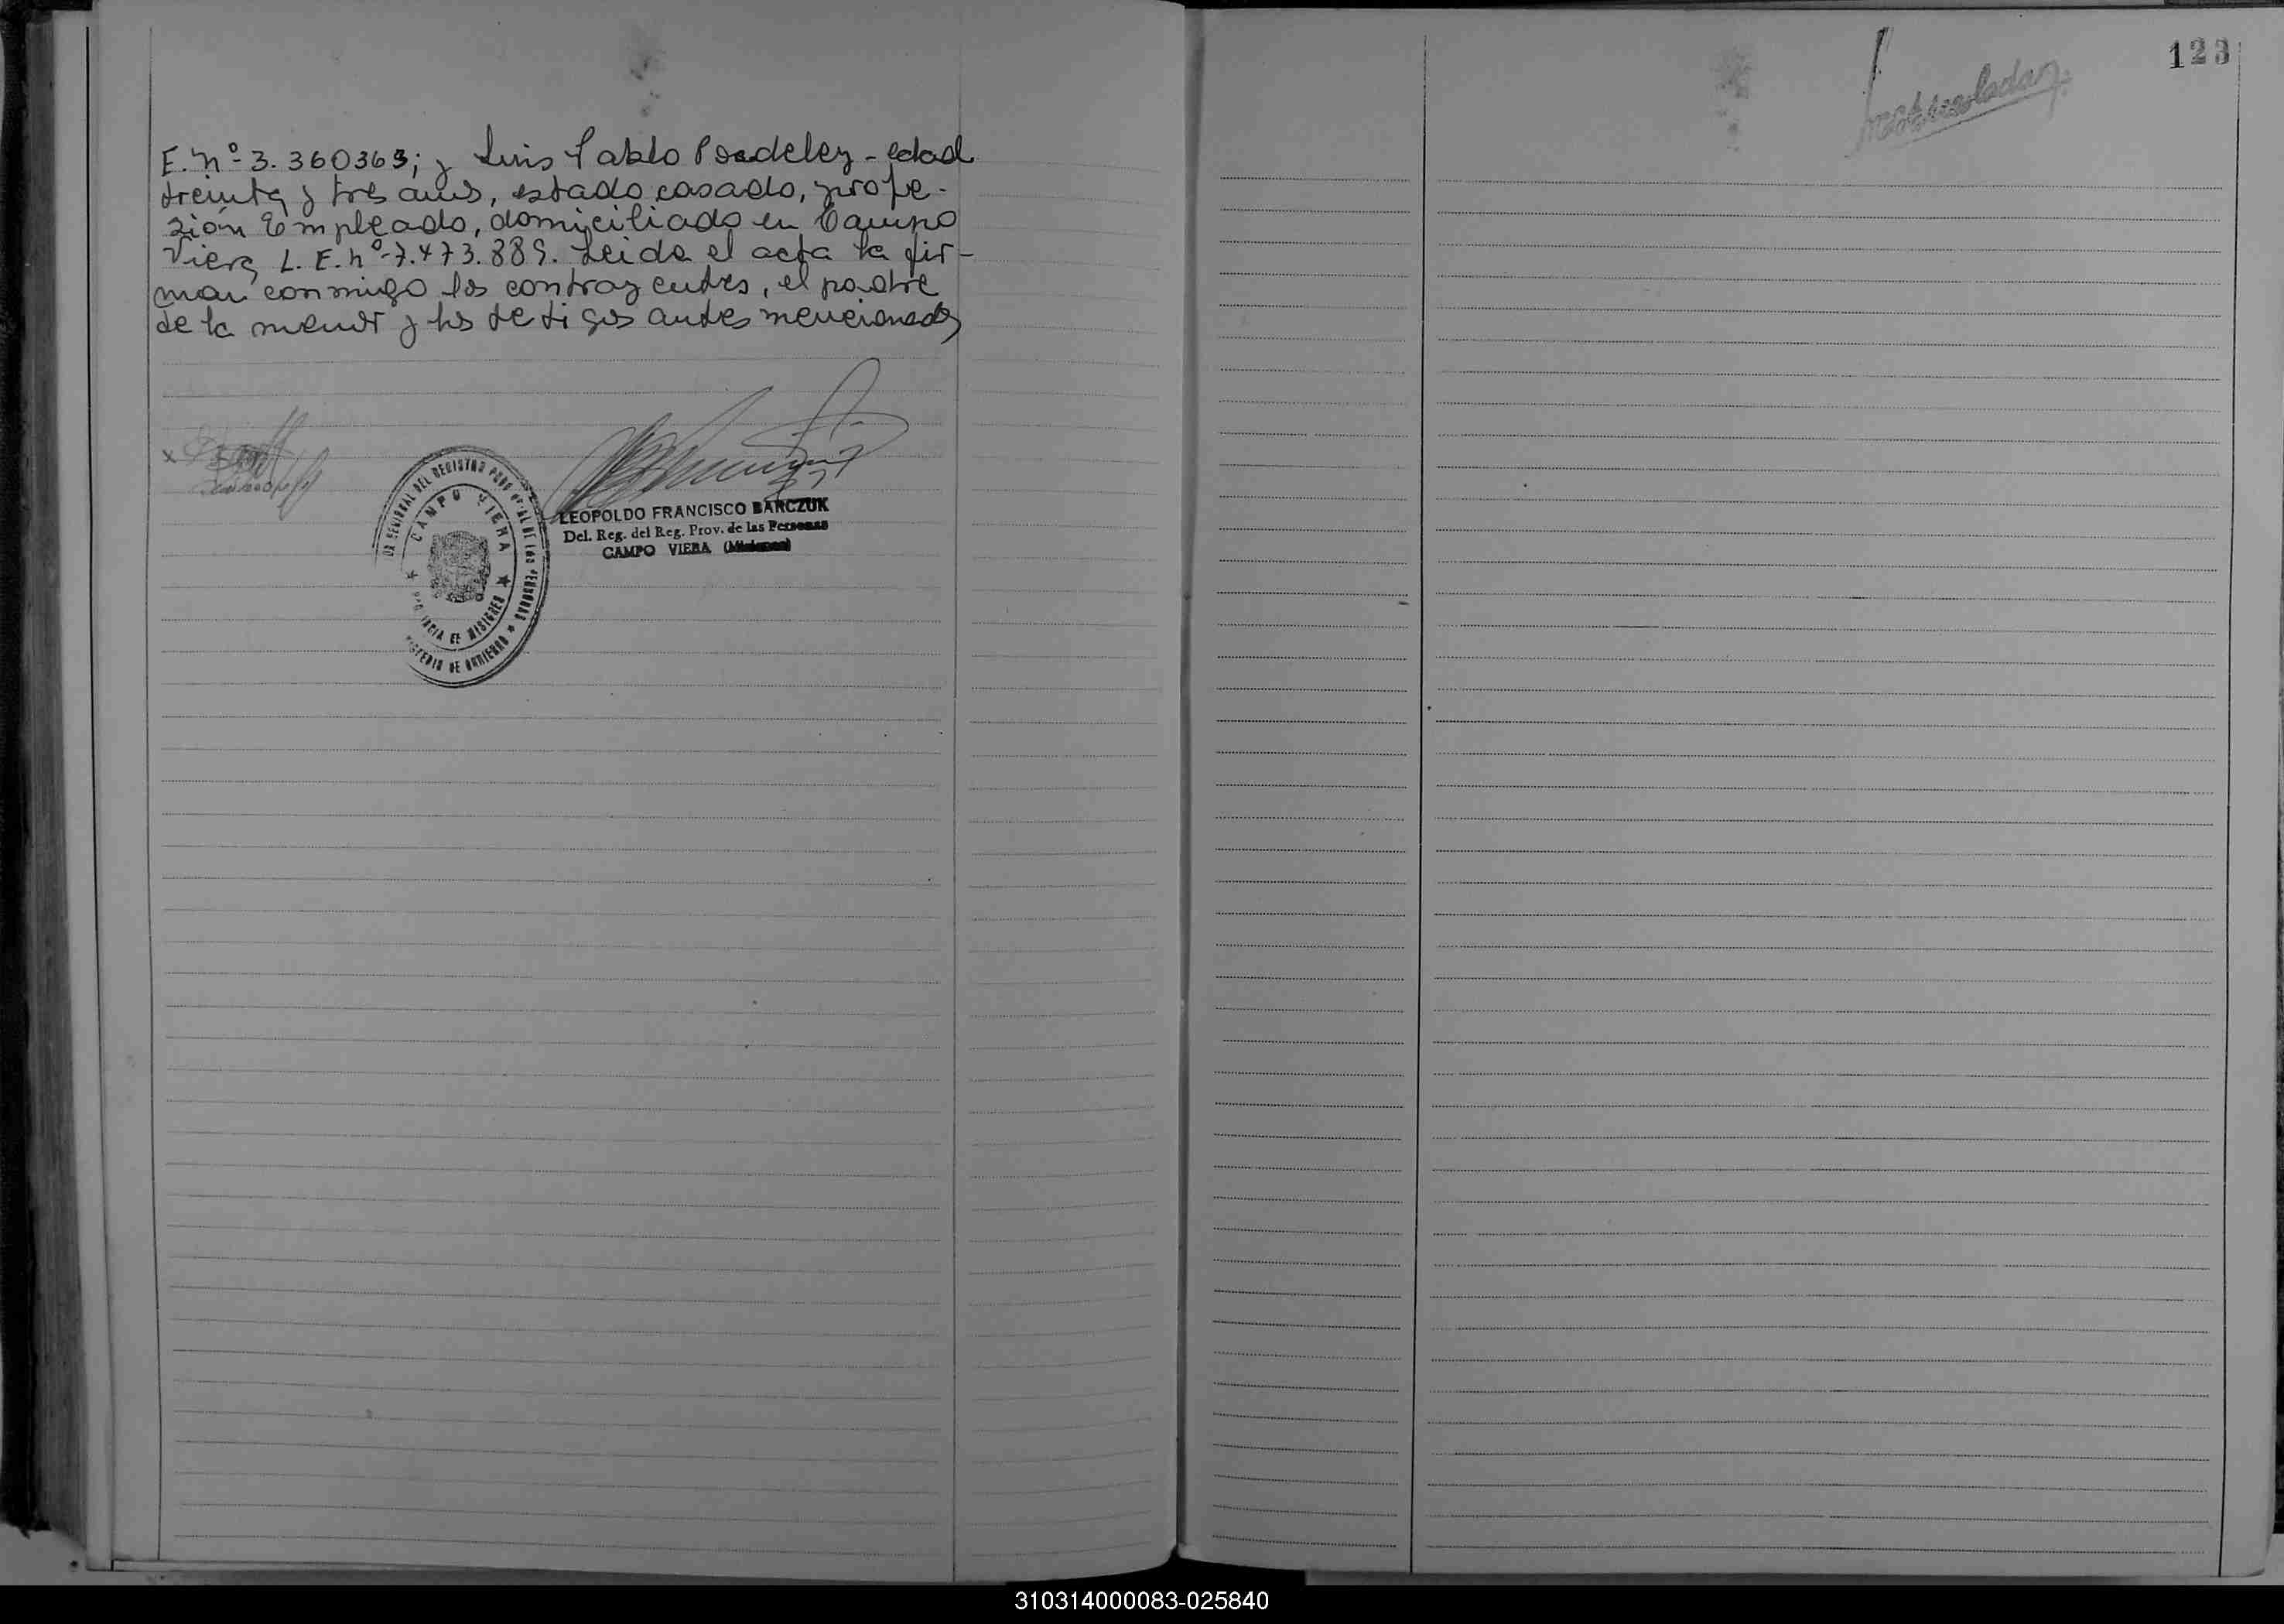 E. Nº- 3. 360363; y Luis Pablo - edad
treinta y tres años, estado casado, profe-
sión Empleado, domiciliado en Campo
Viera, L. E. nº- 7.473.889. Leida el acta la fir-
man conmigo los contrayentes, el padre
de la menor y los testigos antes mencionados
CAMPO VIERA
PROVINCIA DE MISIONES
MINISTERIO DE GOBIERNO
LEOPOLDO FRANCISCO BARCZUK
Del. Reg. del Reg. Prov. de las Personas
CAMPO VIERA (Misiones)
123
310314000083-025840